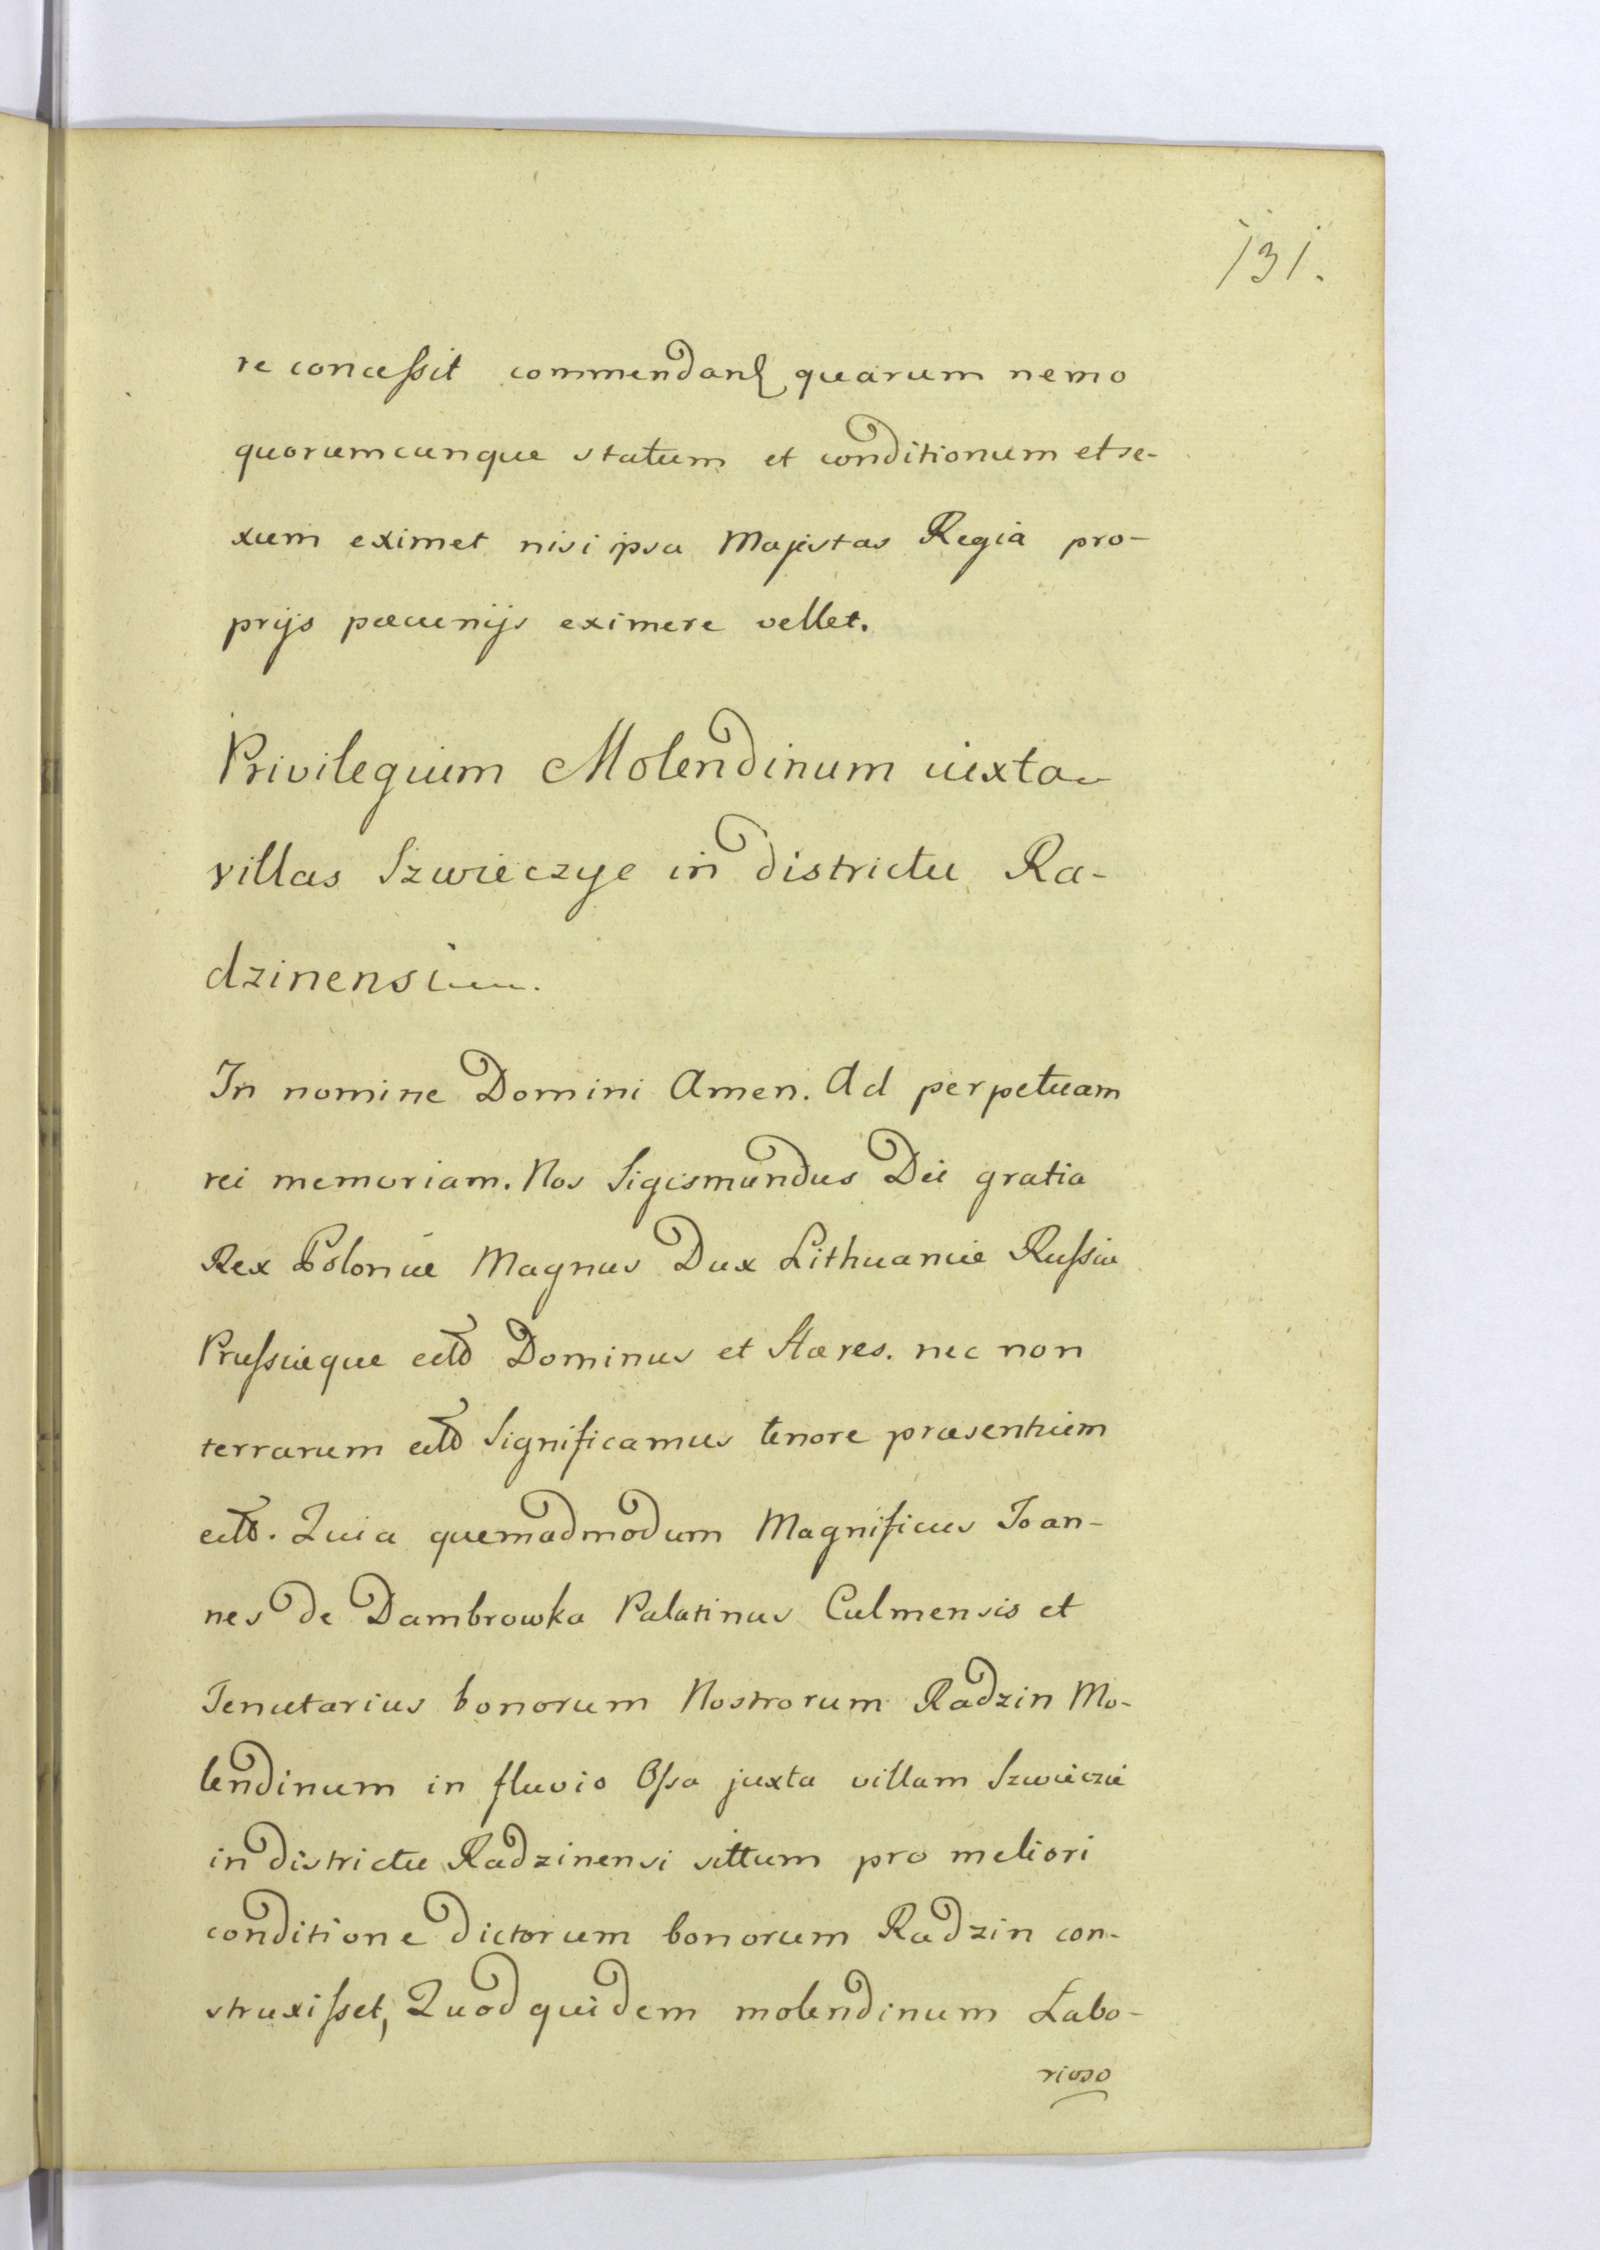 131.
re concessit commendans quarum nemo
quorumcunque statum et conditionum et se-
xum eximet nisi ipsa Majestas Regia pro-
prijs pecunijs eximere vellet.
Privilegium Molendinum iuxta
villas Szwieczye in districtu Ra-
dzinensi.
In nomine Domini Amen. Ad perpetuam
rei memoriam. Nos Sigismundus Dei gratia
Rex Poloniæ Magnus Dux Lithuaniæ Russiæ
Prussiæque etc Dominus et Hæres. nec non
terrarum etc Significamus tenore præsentium
etc. Quia quemadmodum Magnificus Joan-
nes de Dambrowka Palatinus Culmensis et
Tenutarius bonorum Nostrorum Radzin Mo-
lendinum in fluvio Ossa juxta villam Szwieczie
in districtu Radzinensi sittum pro meliori
conditione dictorum bonorum Radzin con-
struxisset, Quod quidem molendinum Labo-
rioso